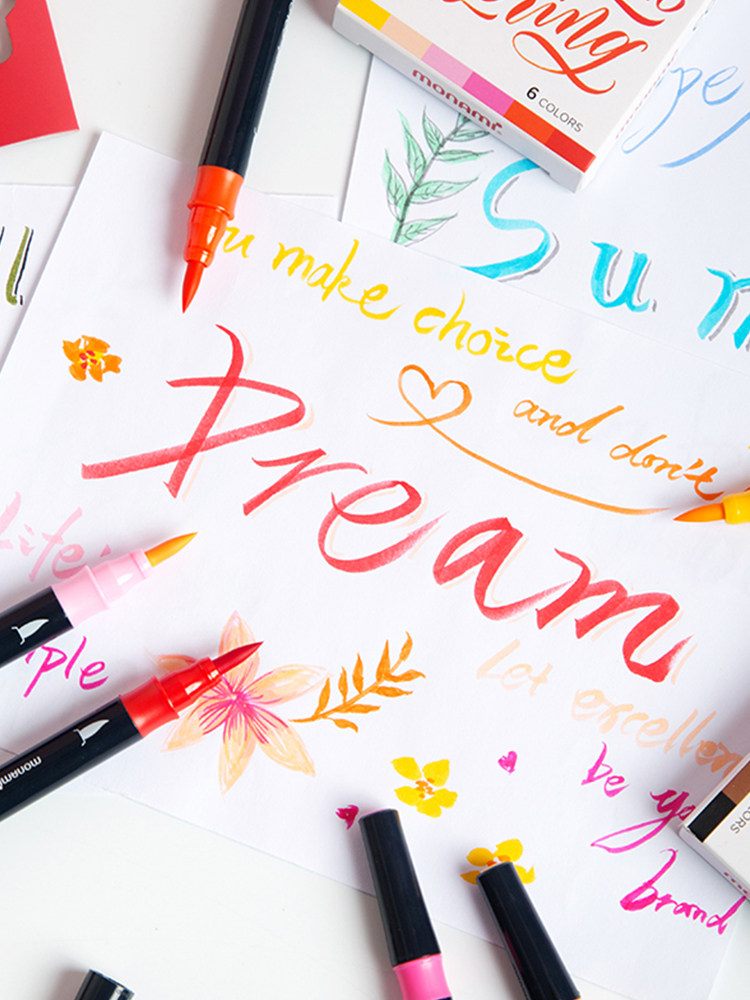 monami
6 COLORS
u make choice
and don't
Dream
Life
ple
Let excellen
be yo
brand
Su
monami